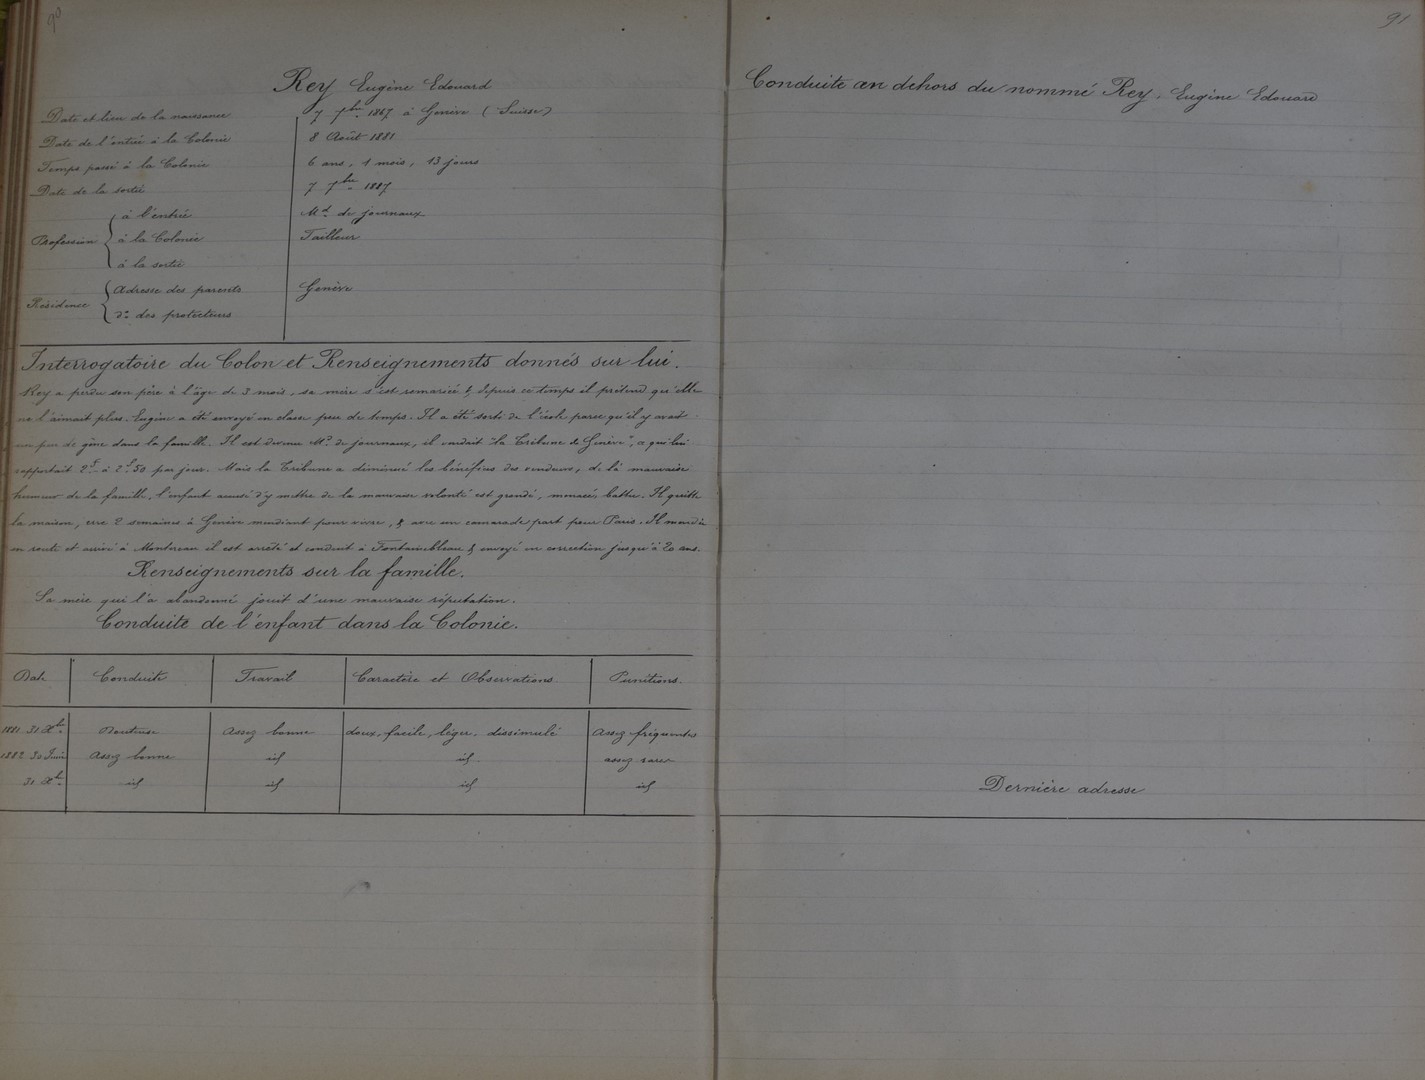 90
Rey Eugène Edouard
Date et lieu de la naissance 7 7bre 1867 à Genève (Suisse)
Date de l'entrée à la Colonie 8 Août 1881
Temps passé à la Colonie 6 ans, 1 mois, 13 jours
Date de la sortie 7 7bre 1887
Profession { à l'entrée Md de journaux
à la Colonie Tailleur
à la sortie
Résidence { Adresse des parents Genève
do des protecteurs
Interrogatoire du Colon et Renseignements donnés sur lui.
Rey a perdu son père à l'âge de 3 mois, sa mère s'est remariée & depuis ce temps il prétend qu'elle
ne l'aimait plus. Eugène a été envoyé en classe peu de temps. Il a été sorti de l'école parce qu'il y avait
un peu de gêne dans la famille. Il est devenu Md de journaux, il vendait "la Tribune de Genève", ce qui lui
rapportait 2f à 2f50 par jour. Mais la Tribune a diminué les bénéfices des vendeurs, de là mauvaise
humeur de la famille, l'enfant accusé d'y mettre de la mauvaise volonté est grondé, menacé, battu. Il quitte
la maison, erre 2 semaines à Genève mendiant pour vivre, & avec un camarade part pour Paris. Il mendie
en route et arrivé à Montereau il est arrêté et conduit à Fontainebleau & envoyé en correction jusqu'à 20 ans.
Renseignements sur la famille.
Sa mère qui l'a abandonné jouit d'une mauvaise réputation.
Conduite de l'enfant dans la Colonie.
Date Conduite Travail Caractère et Observations Punitions.
1881 31 Xbre Douteuse Assez bonne doux, facile, léger, dissimulé Assez fréquentes
1882 30 Juin Assez bonne id id assez rares
31 Xbre id id id id
91
Conduite en dehors du nommé Rey, Eugène Edouard
Dernière adresse